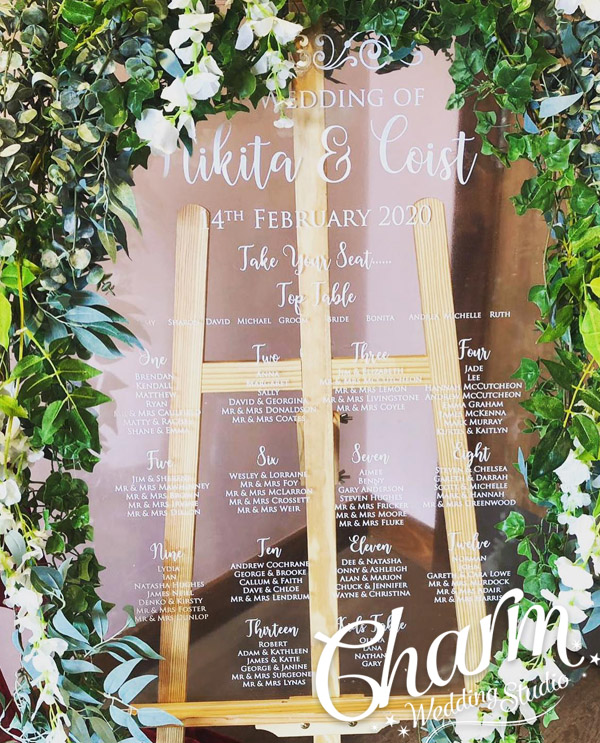 Wedding of
Nikita & Coist
14th February 2020
Take Your Seat......
Top Table
David Michael Groom Bride Bonita Andrea Michelle Ruth
One
Brendan
Kendall
Matthew
Ryan
Two
Margaret
Sally
David & Georgina
Mr & Mrs Donaldson
Mr & Mrs Coates
Three
Mr & Mrs McCutcheon
Mr & Mrs Lemon
Mr & Mrs Livingstone
Mr & Mrs Coyle
Four
Jade
Lee
Hannah McCutcheon
Andrew McCutcheon
Emma Graham
James McKenna
Mark Murray
& Kaitlyn
Five
Jim &
Mr & Mrs
Mr & Mrs
Mr & Mrs
Mr & Mrs
Six
Wesley & Lorraine
Mr & Mrs Foy
Mr & Mrs McLarron
Mr & Mrs Crossett
Mr & Mrs Weir
Seven
Aimee
Benny
Gary Anderson
Steven Hughes
Mr & Mrs Fricker
Mr & Mrs Moore
Mr & Mrs Fluke
Eight
Steven & Chelsea
Gareth & Darrah
Scott & Michelle
Mark & Hannah
Mr & Mrs Greenwood
Nine
Lydia
Ian
Natasha Hughes
James Neill
Denko & Kirsty
Mr & Mrs Foster
Mr & Mrs Dunlop
Ten
Andrew Cochrane
George & Brooke
Callum & Faith
Dave & Chloe
Mr & Mrs Lendrum
Eleven
Dee & Natasha
Jonny & Ashleigh
Alan & Marion
Chuck & Jennifer
Wayne & Christina
Twelve
Norman
Gareth & Cara Lowe
Mr & Mrs Murdock
Mr & Mrs Adair
Mr & Mrs Harris
Thirteen
Robert
Adam & Kathleen
James & Katie
George & Janine
Mr & Mrs Surgeoner
Mr & Mrs Lynas
Kids Table
Olivia
Lana
Nathan
Gary
Charm
Wedding Studio